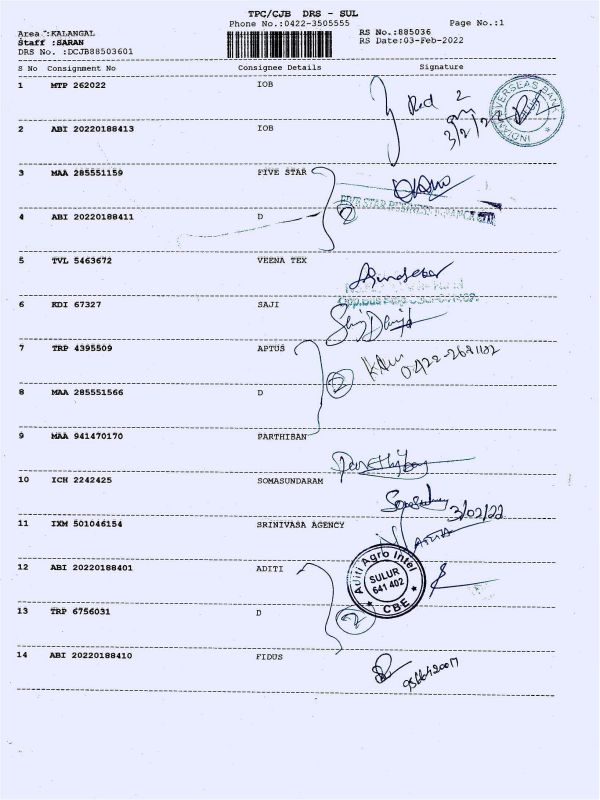 TPC/CJB DRS - SUL
Phone No.:0422-3505555 Page No.:1
Area :KALANGAL RS No.:885036
Staff :SARAN RS Date:03-Feb-2022
DRS No. :DCJB88503601
S No Consignment No Consignee Details Signature
1 MTP 262022 IOB
Red 2
3/2/22
OVERSEAS BANK
INDIAN
2 ABI 20220188413 IOB
3 MAA 285551159 FIVE STAR
FIVE STAR BUSINESS FINANCE LTD.
2
4 ABI 20220188411 D
5 TVL 5463672 VEENA TEX
6 KDI 67327 SAJI
7 TRP 4395509 APTUS
2
8 MAA 285551566 D
9 MAA 941470170 PARTHIBAN
10 ICH 2242425 SOMASUNDARAM
3/02/22
11 IXM 501046154 SRINIVASA AGENCY
12 ABI 20220188401 ADITI
Aditi Agro Intel
SULUR
641 402
CBE
13 TRP 6756031 D
2
14 ABI 20220188410 FIDUS